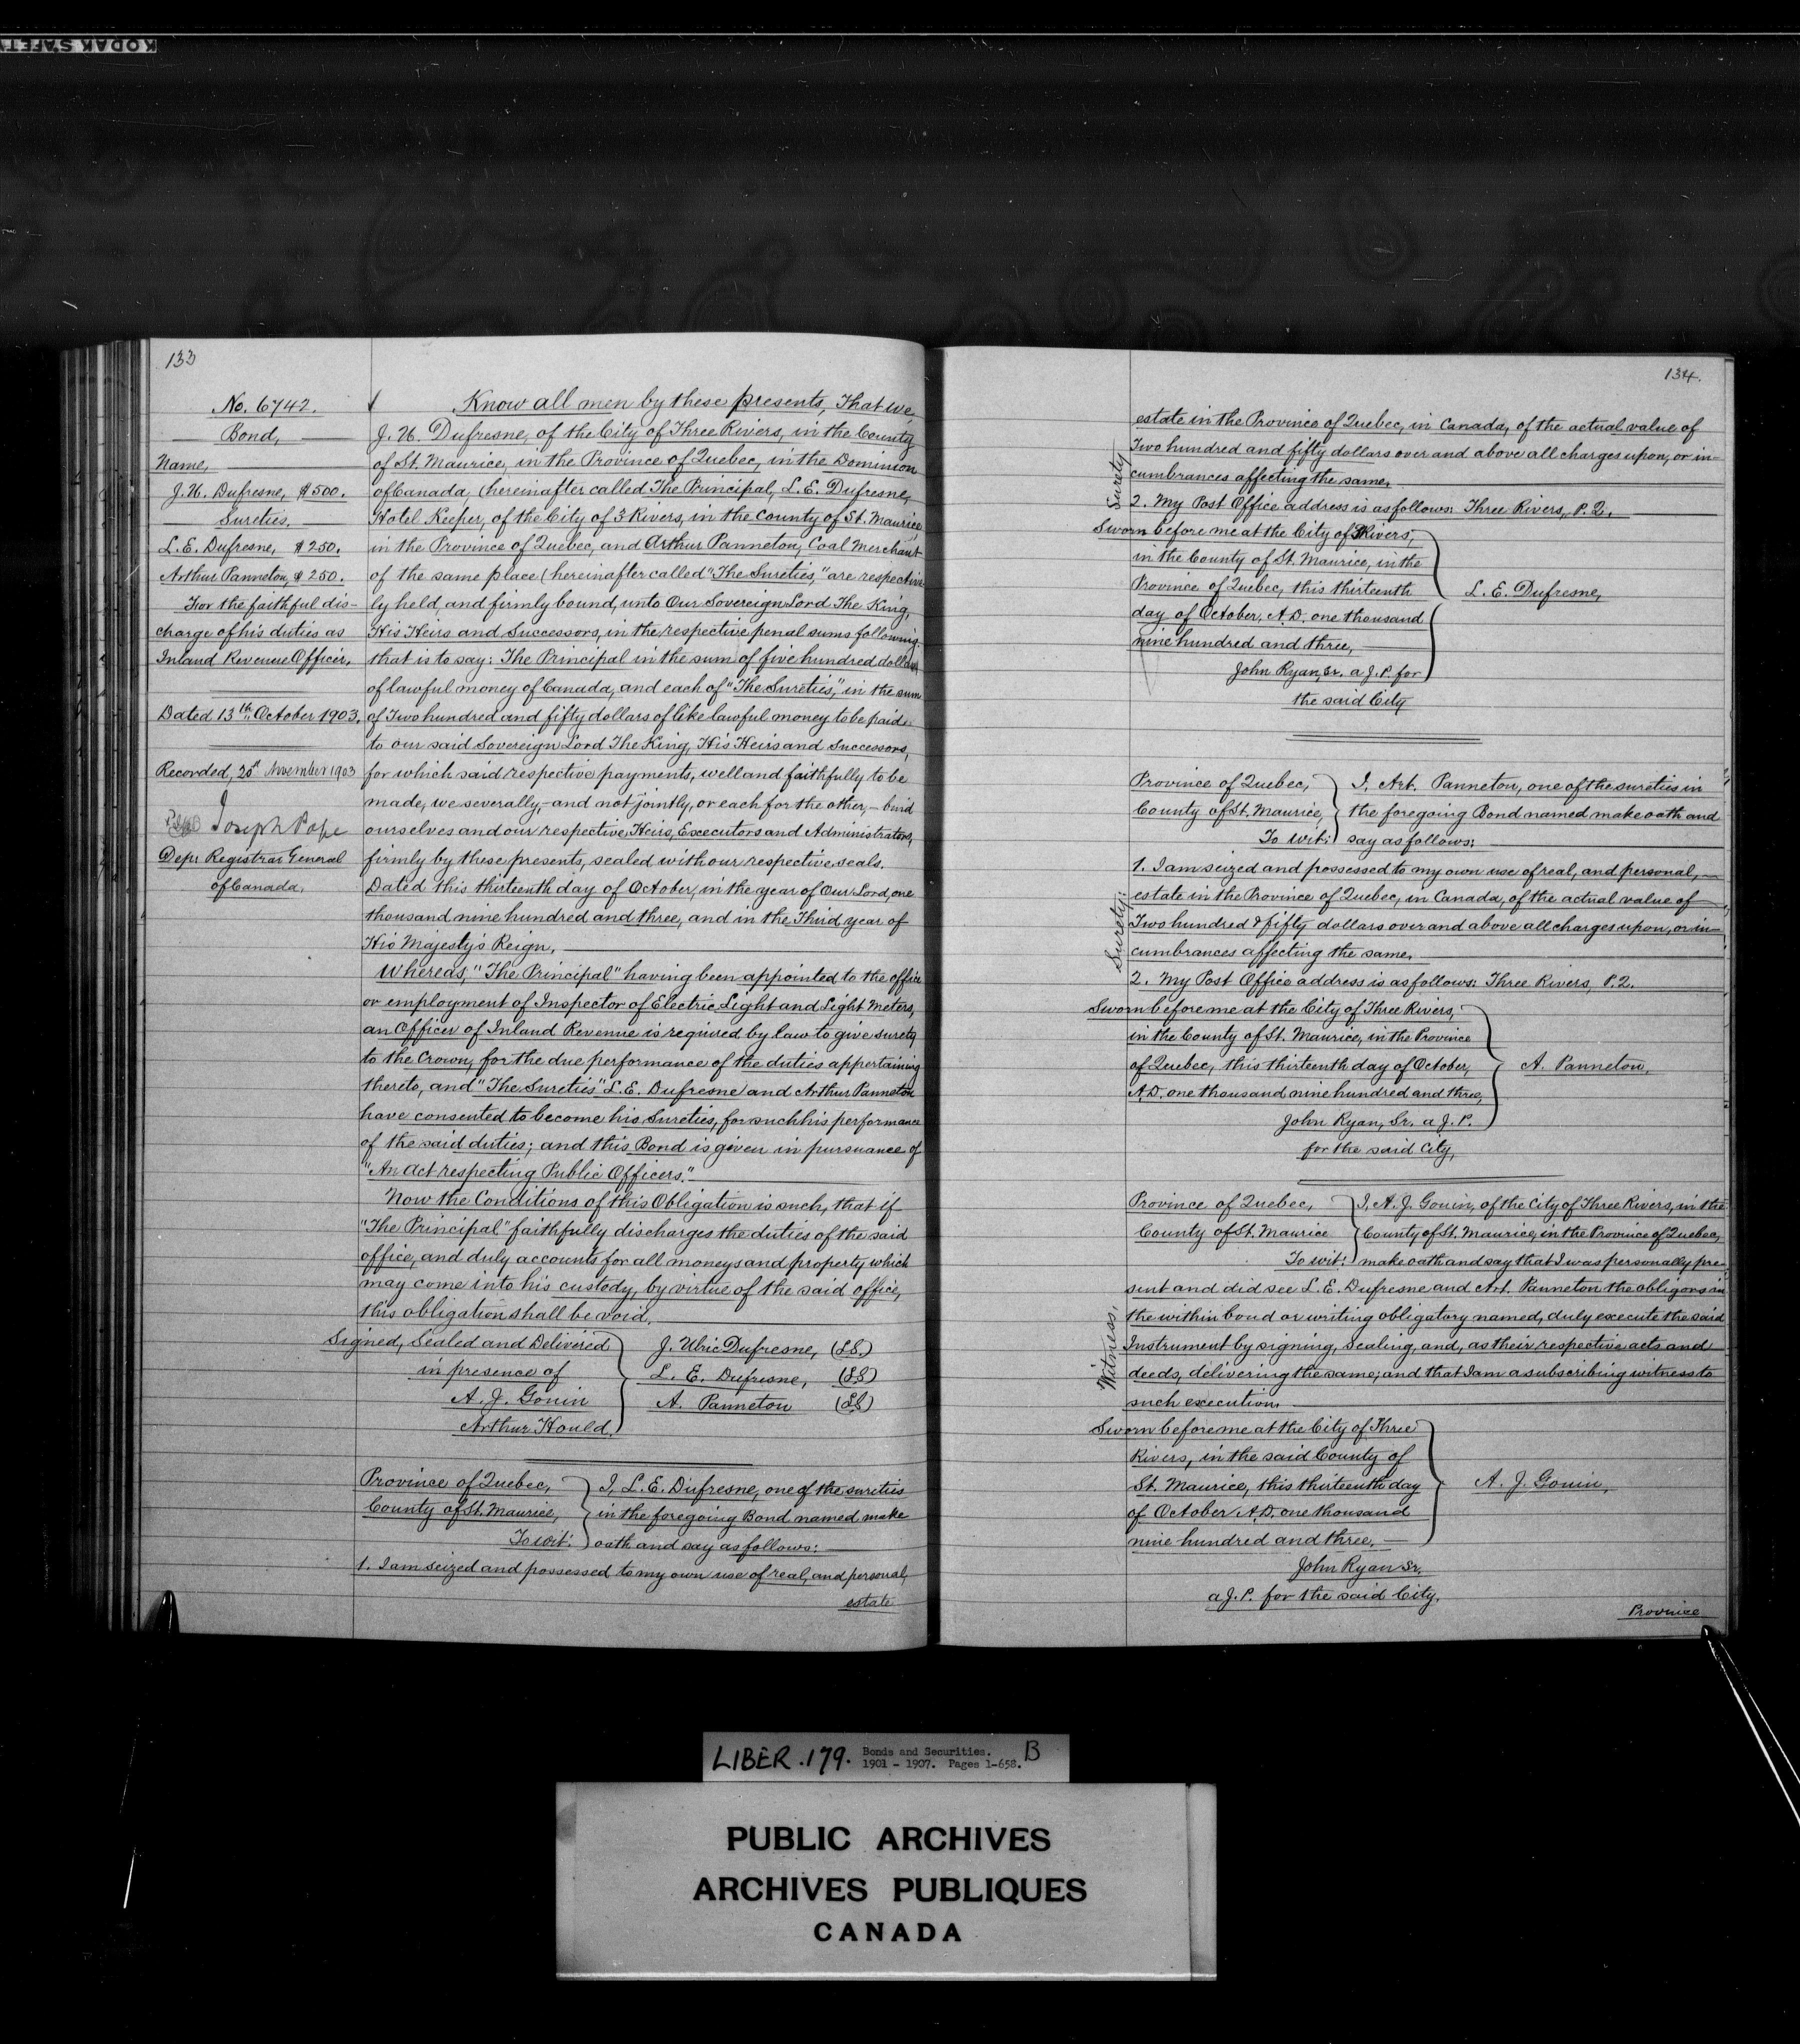 KODAK SAFETY
133
No. 6742.
Bond,
Name,
J. U. Dufresne, $500.
Sureties,
L. E. Dufresne, $250.
Arthur Panneton, $250.
For the faithful dis-
charge of his duties as
Inland Revenue Officer.
Dated 13th October 1903.
Recorded, 20th November 1903
Joseph Pope
Depr Registrar General
of Canada.
Know all men by these presents, That we,
J. U. Dufresne, of the City of Three Rivers, in the County
of St. Maurice, in the Province of Quebec, in the Dominion
of Canada, (hereinafter called The Principal, L. E. Dufresne,
Hotel Keeper, of the City of 3 Rivers, in the County of St. Maurice
in the Province of Quebec, and Arthur Panneton, Coal Merchant
of the same place (hereinafter called "The Sureties," are respective-
ly held, and firmly bound, unto Our Sovereign Lord The King,
His Heirs and Successors, in the respective penal sums following.
that is to say: The Principal in the sum of five hundred dollars
of lawful money of Canada, and each of "The Sureties," in the sum
of Two hundred and fifty dollars of like lawful money to be paid
to our said Sovereign Lord The King, His Heirs and Successors,
for which said respective payments, well and faithfully to be
made, we severally, - and not jointly, or each for the other, - bind
ourselves and our respective, Heirs, Executors and Administrators,
firmly by these presents, sealed with our respective seals.
Dated this thirteenth day of October, in the year of Our Lord, one
thousand nine hundred and three, and in the Third year of
His Majesty's Reign.
Whereas, "The Principal" having been appointed to the office
or employment of Inspector of Electric Light and Light Meters,
an Officer of Inland Revenue is required by law to give surety
to the Crown, for the due performance of the duties appertaining
thereto, and "The Sureties" L. E. Dufresne and Arthur Panneton
have consented to become his Sureties, for such his performance
of the said duties; and this Bond is given in pursuance of
"An Act respecting Public Officers."
Now the Conditions of this Obligation is such, that if
"The Principal" faithfully discharges the duties of the said
office, and duly accounts for all moneys and property which
may come into his custody, by virtue of the said office,
this obligation shall be void.
Signed, Sealed and Delivered
in presence of
A. J. Gouin
Arthur Hould.
J. Ulric Dufresne, (LS.)
L. E. Dufresne, (LS)
A. Panneton (LS)
Province of Quebec,
County of St. Maurice,
To wit:
I, L. E. Dufresne, one of the sureties
in the foregoing Bond named make
oath and say as follows:
1. I am seized and possessed to my own use of real, and personal,
estate
134.
estate in the Province of Quebec, in Canada, of the actual value of
Two hundred and fifty dollars over and above all charges upon, or in-
cumbrances affecting the same.
2. My Post Office address is as follows: Three Rivers, P. Q.
Surety
Sworn before me at the City of 3 Rivers,
in the County of St. Maurice, in the
Province of Quebec, this thirteenth
day of October, A.D. one thousand
nine hundred and three,
John Ryan, Sr. a J. P. for
the said City
L. E. Dufresne,
Province of Quebec,
County of St. Maurice,
To wit:
I, Art. Panneton, one of the sureties in
the foregoing Bond named make oath and
say as follows:
1. I am seized and possessed to my own use of real, and personal,
estate in the Province of Quebec, in Canada, of the actual value of
Two hundred & fifty dollars over and above all charges upon, or in-
cumbrances affecting the same.
2. My Post Office address is as follows: Three Rivers, P. Q.
Surety.
Sworn before me at the City of Three Rivers,
in the County of St. Maurice, in the Province
of Quebec, this thirteenth day of October,
A.D. one thousand nine hundred and three,
John Ryan, Sr. a J. P.
for the said City,
A. Panneton,
Province of Quebec,
County of St. Maurice
To wit:
I, A. J. Gouin, of the City of Three Rivers, in the
County of St. Maurice, in the Province of Quebec,
make oath and say that I was personally pre-
sent and did see L. E. Dufresne and Art. Panneton the obligors in
the within bond or writing obligatory named, duly execute the said
Instrument by signing, Sealing, and, as their respective acts and
deeds, delivering the same; and that I am a subscribing witness to
such execution.
Witness.
Sworn before me at the City of Three
Rivers, in the said County of
St. Maurice, this thirteenth day
of October A.D. one thousand
nine hundred and three,
John Ryan Sr.
a J. P. for the said City.
A. J. Gouin,
Province
LIBER. 179. Bonds and Securities. B
1901 - 1907. Pages 1-658.
PUBLIC ARCHIVES
ARCHIVES PUBLIQUES
CANADA